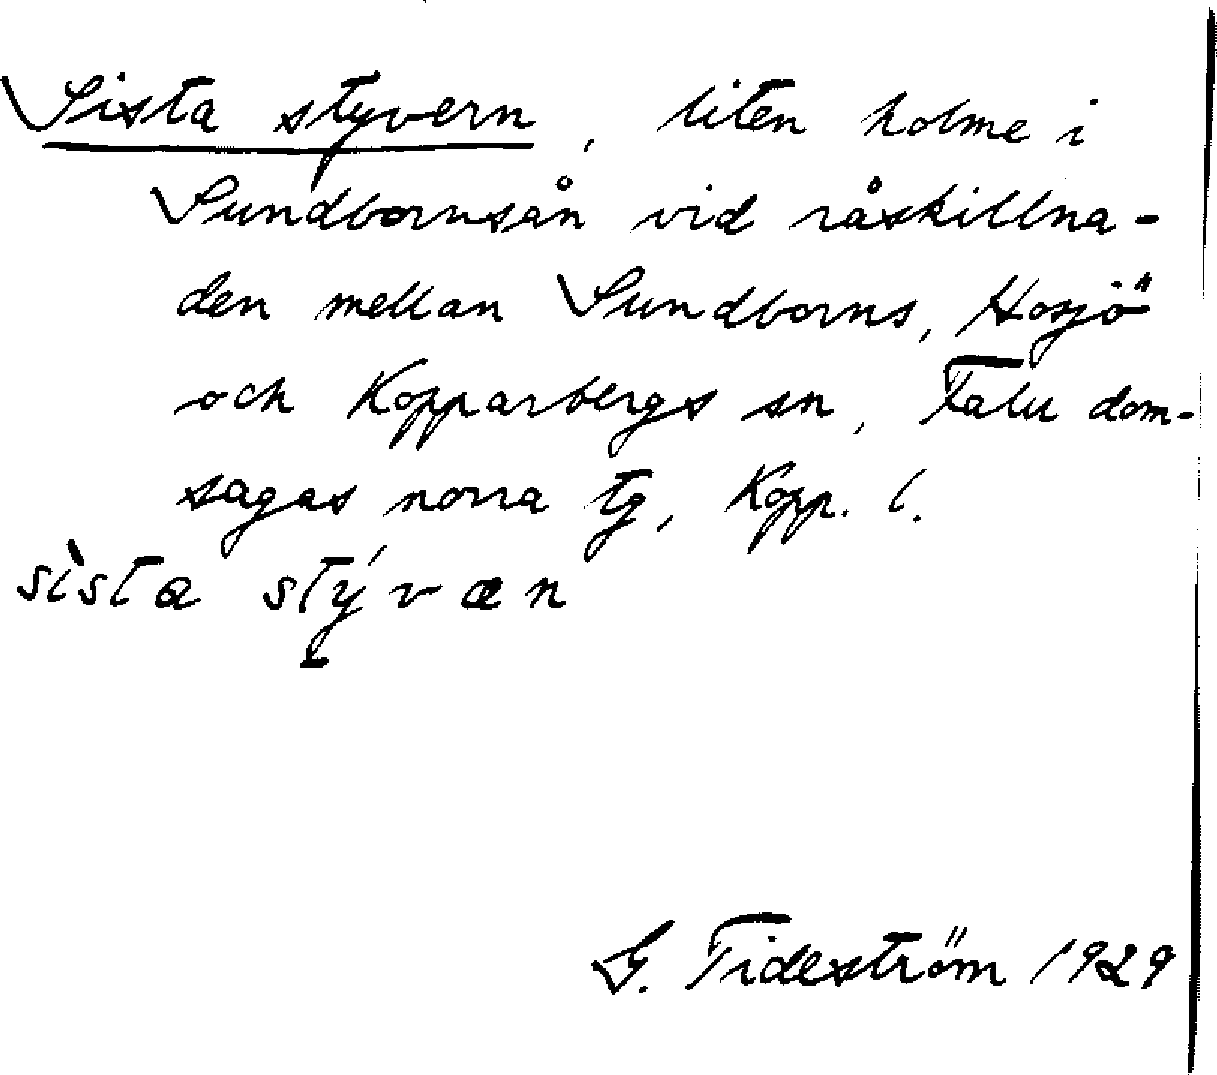 Sista styvern, liten holme i
Sundbornsån vid råskillna-
den mellan Sundborns, Hosjö
och Kopparbergs sn, Falu dom-
sagas norra tg, Kopp. l.
sìsta stývæn
G. Tideström 1929